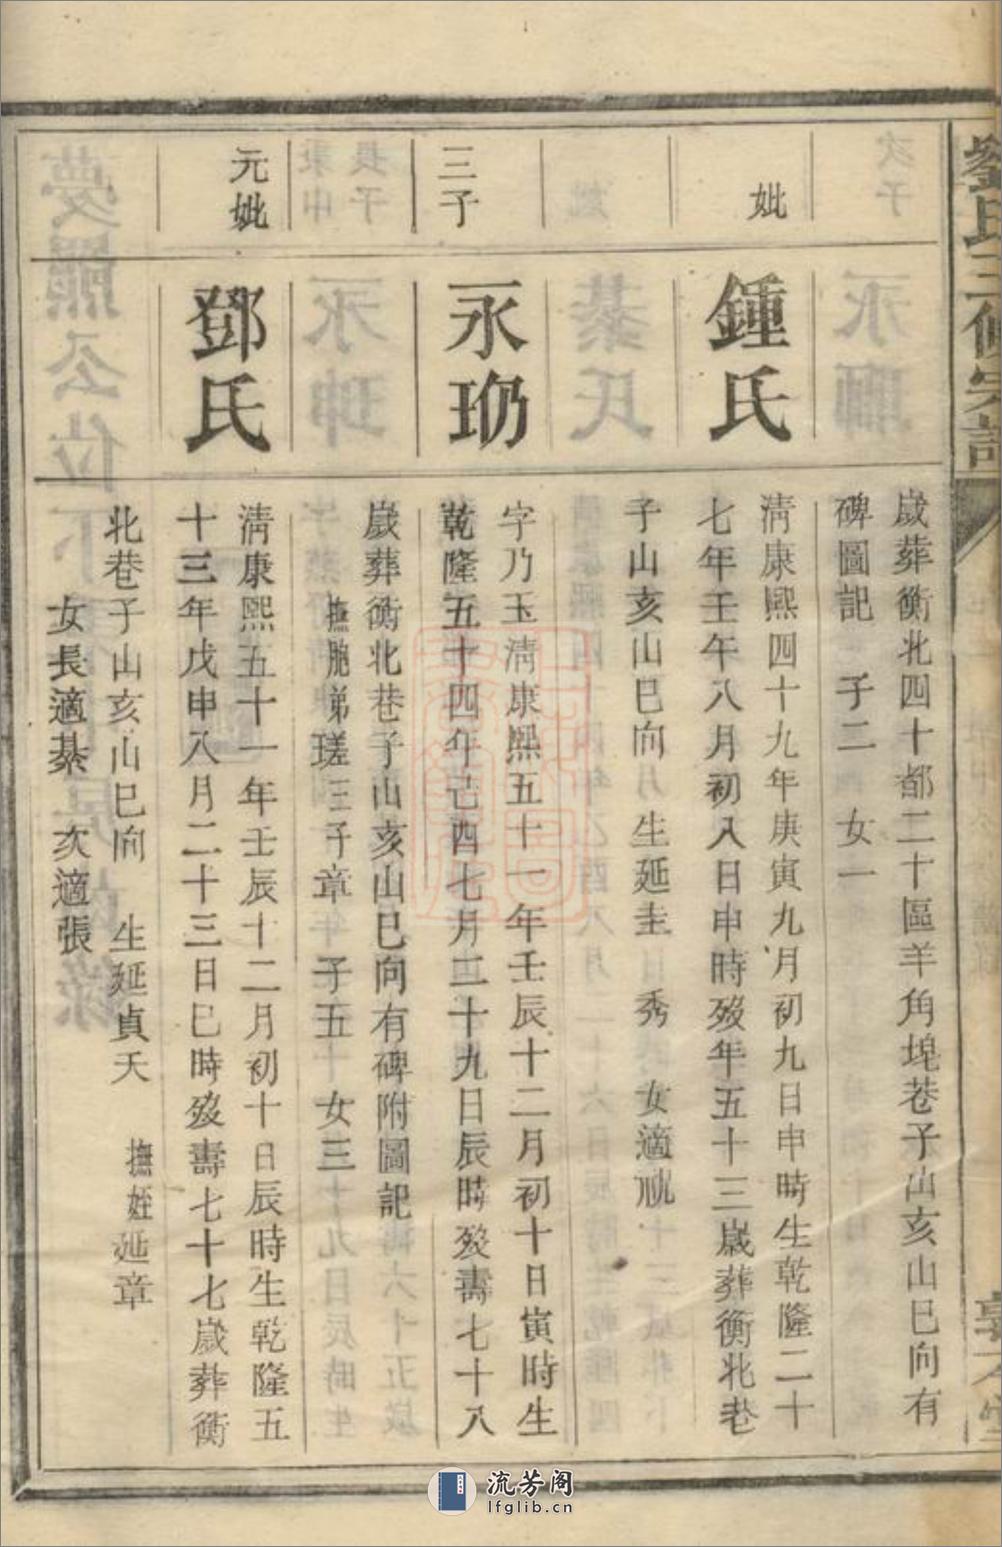 歲葬衡北四十都二十區羊角塊巷子山亥山巳向有
碑圖記 子二 女一
妣
鍾氏
淸康熙四十九年庚寅九月初九日申時生乾隆二十
七年壬午八月初八日申時歿年五十三歲葬衡北巷
子山亥山巳向 生延圭 秀 女適
三子
永玏
字乃玉淸康熙五十一年壬辰十二月初十日寅時生
乾隆五十四年己酉七月二十九日辰時歿壽七十八
歲葬衡北巷子山亥山巳向有碑附圖記
撫胞弟瑳三子章 子五 女三
元妣
鄧氏
淸康熙五十一年壬辰十二月初十日辰時生乾隆五
十三年戊申八月二十三日巳時歿壽七十七歲葬衡
北巷子山亥山巳向 生延貞天 撫姪延章
女長適綦 次適張
流芳阁
lfglib.cn